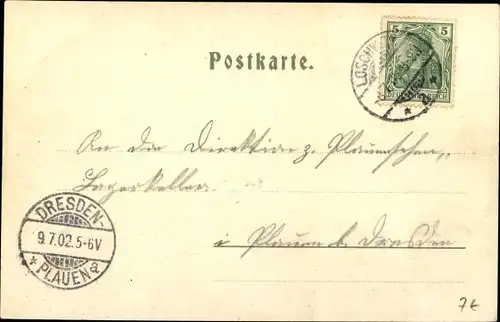 Postkarte.
5 5
LOSCHW
An die Direktion z. Plauenschen
Lagerkeller
i Plauen b. Dresden
DRESDEN-
9.7.02.5-6V
* PLAUEN
7€